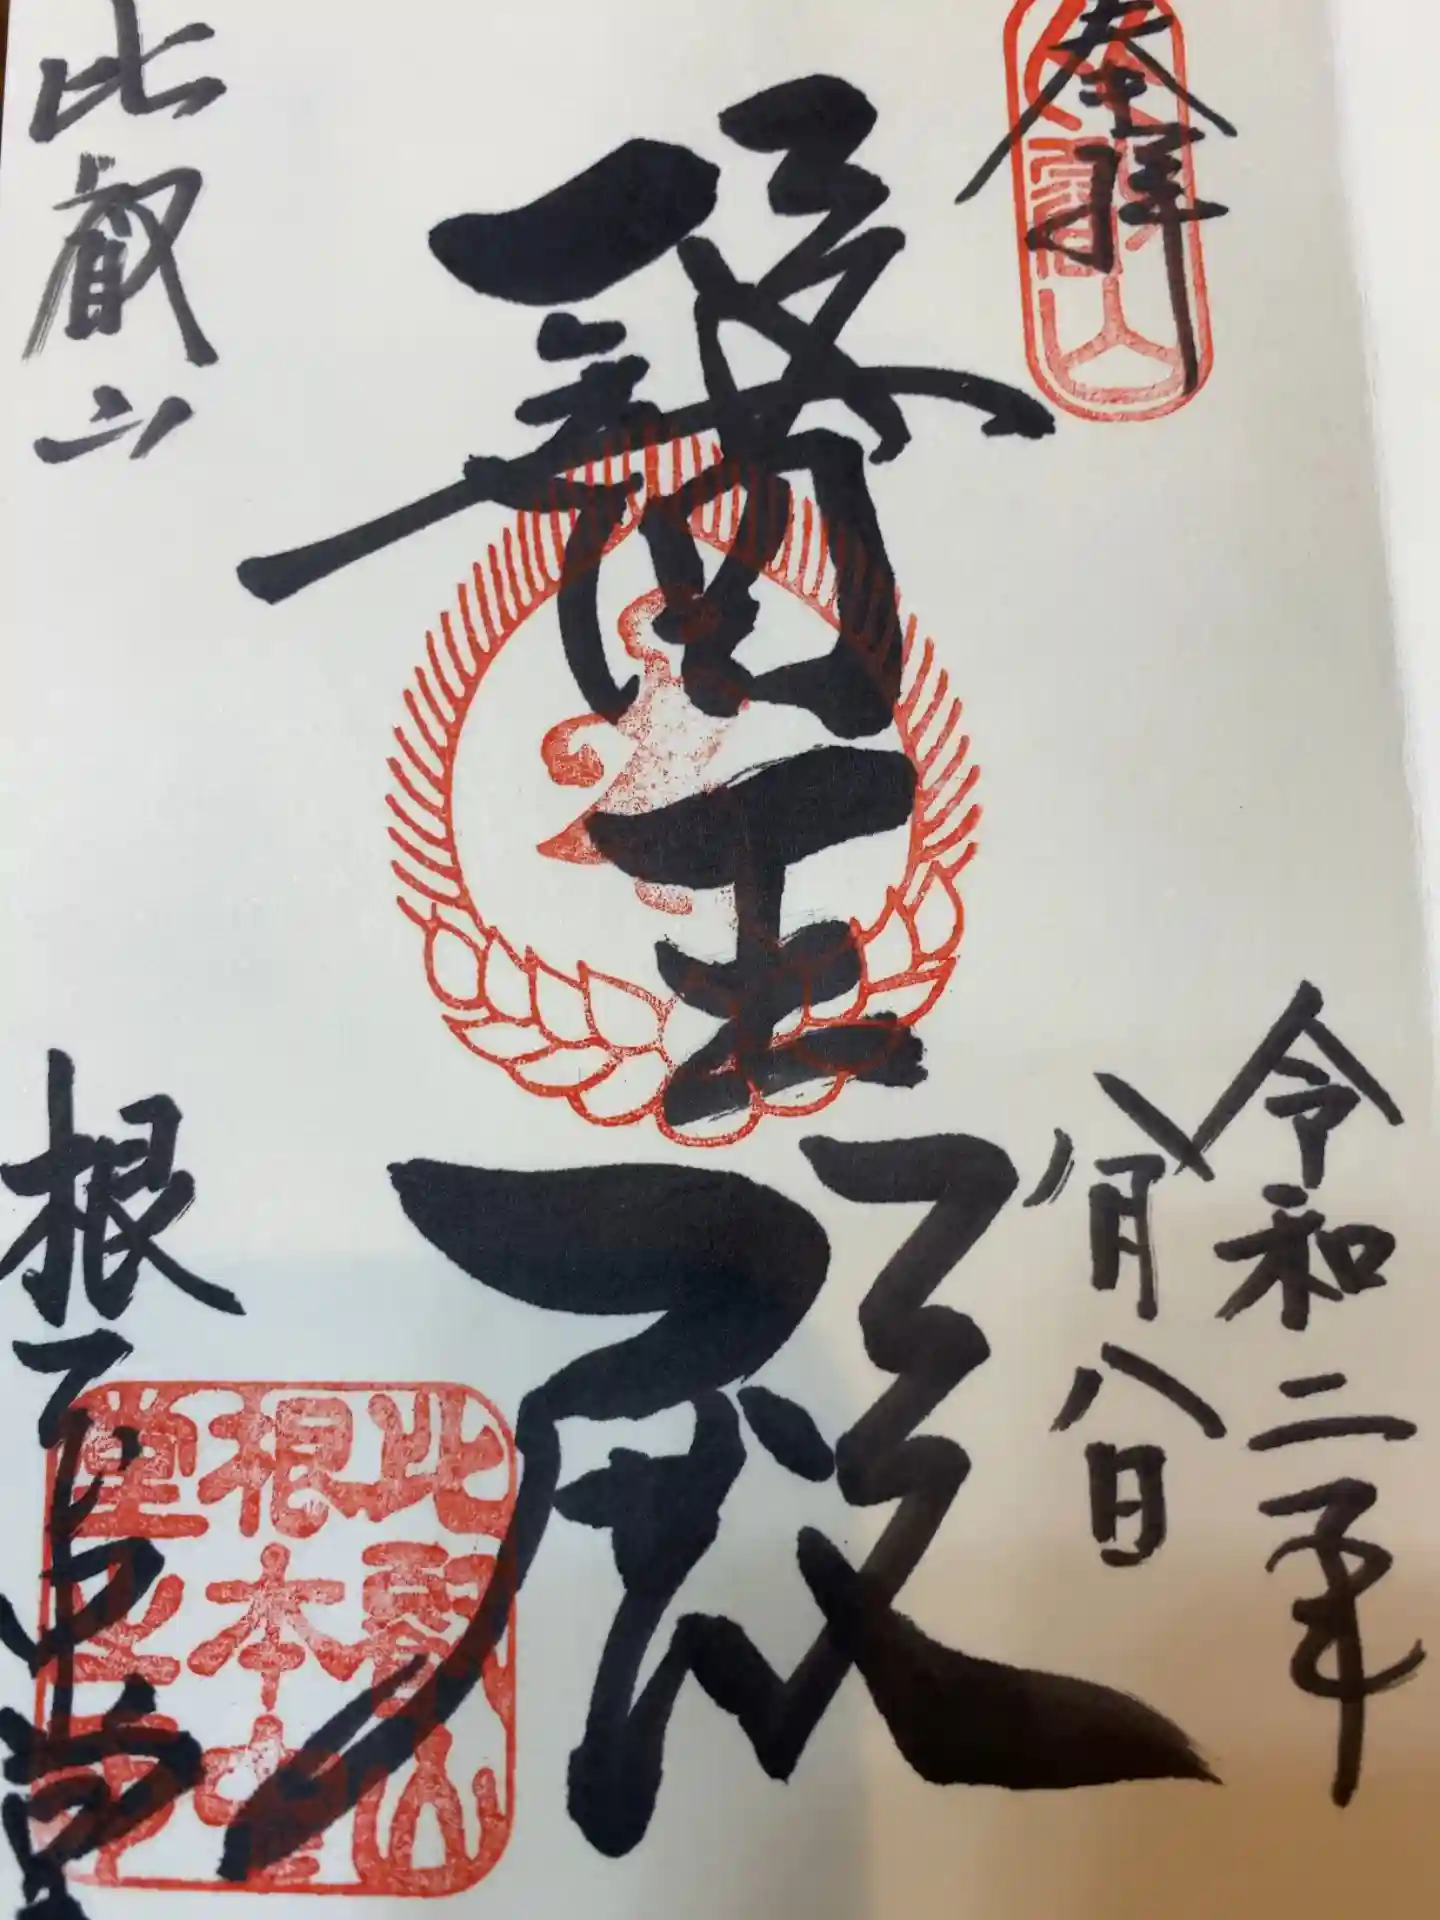 奉拝
令和二年
八月八日
醫王殿
比叡山
根本中堂
比叡山
根本中堂